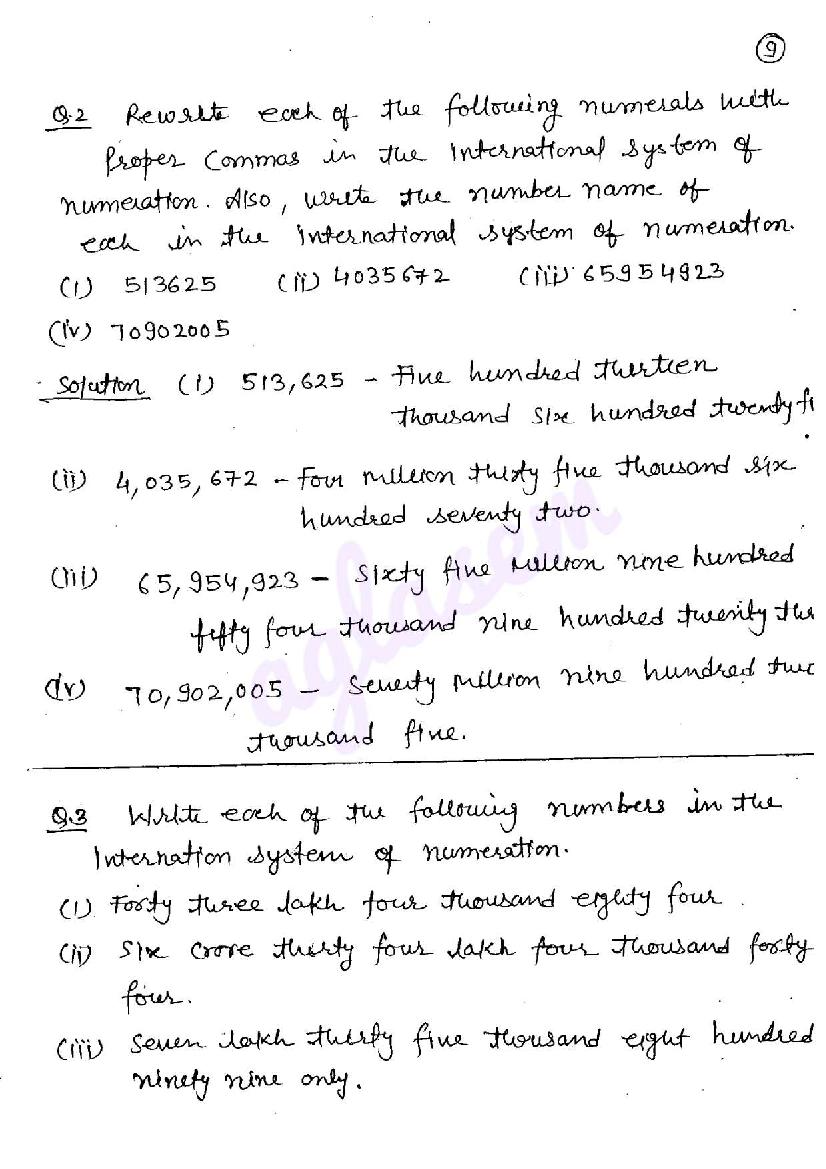 9
Q.2 Rewrite each of the following numerals with
Proper Commas in the International system of
numeration. Also, write the number name of
each in the International system of numeration.
(i) 513625 (ii) 4035672 (iii) 65954923
(iv) 70902005
Solution (i) 513,625 - Five hundred thirteen
thousand six hundred twenty fi
(ii) 4,035,672 - Four million thirty five thousand six
hundred seventy two.
(iii) 65,954,923 - Sixty five million nine hundred
fifty four thousand nine hundred twenty thr
(iv) 70,902,005 - Seventy million nine hundred two
thousand five.
aglasem
Q.3 Write each of the following numbers in the
Internation system of numeration.
(i) Forty three lakh four thousand eighty four.
(ii) Six crore thirty four lakh four thousand forty
four.
(iii) Seven lakh thirty five thousand eight hundred
ninety nine only.